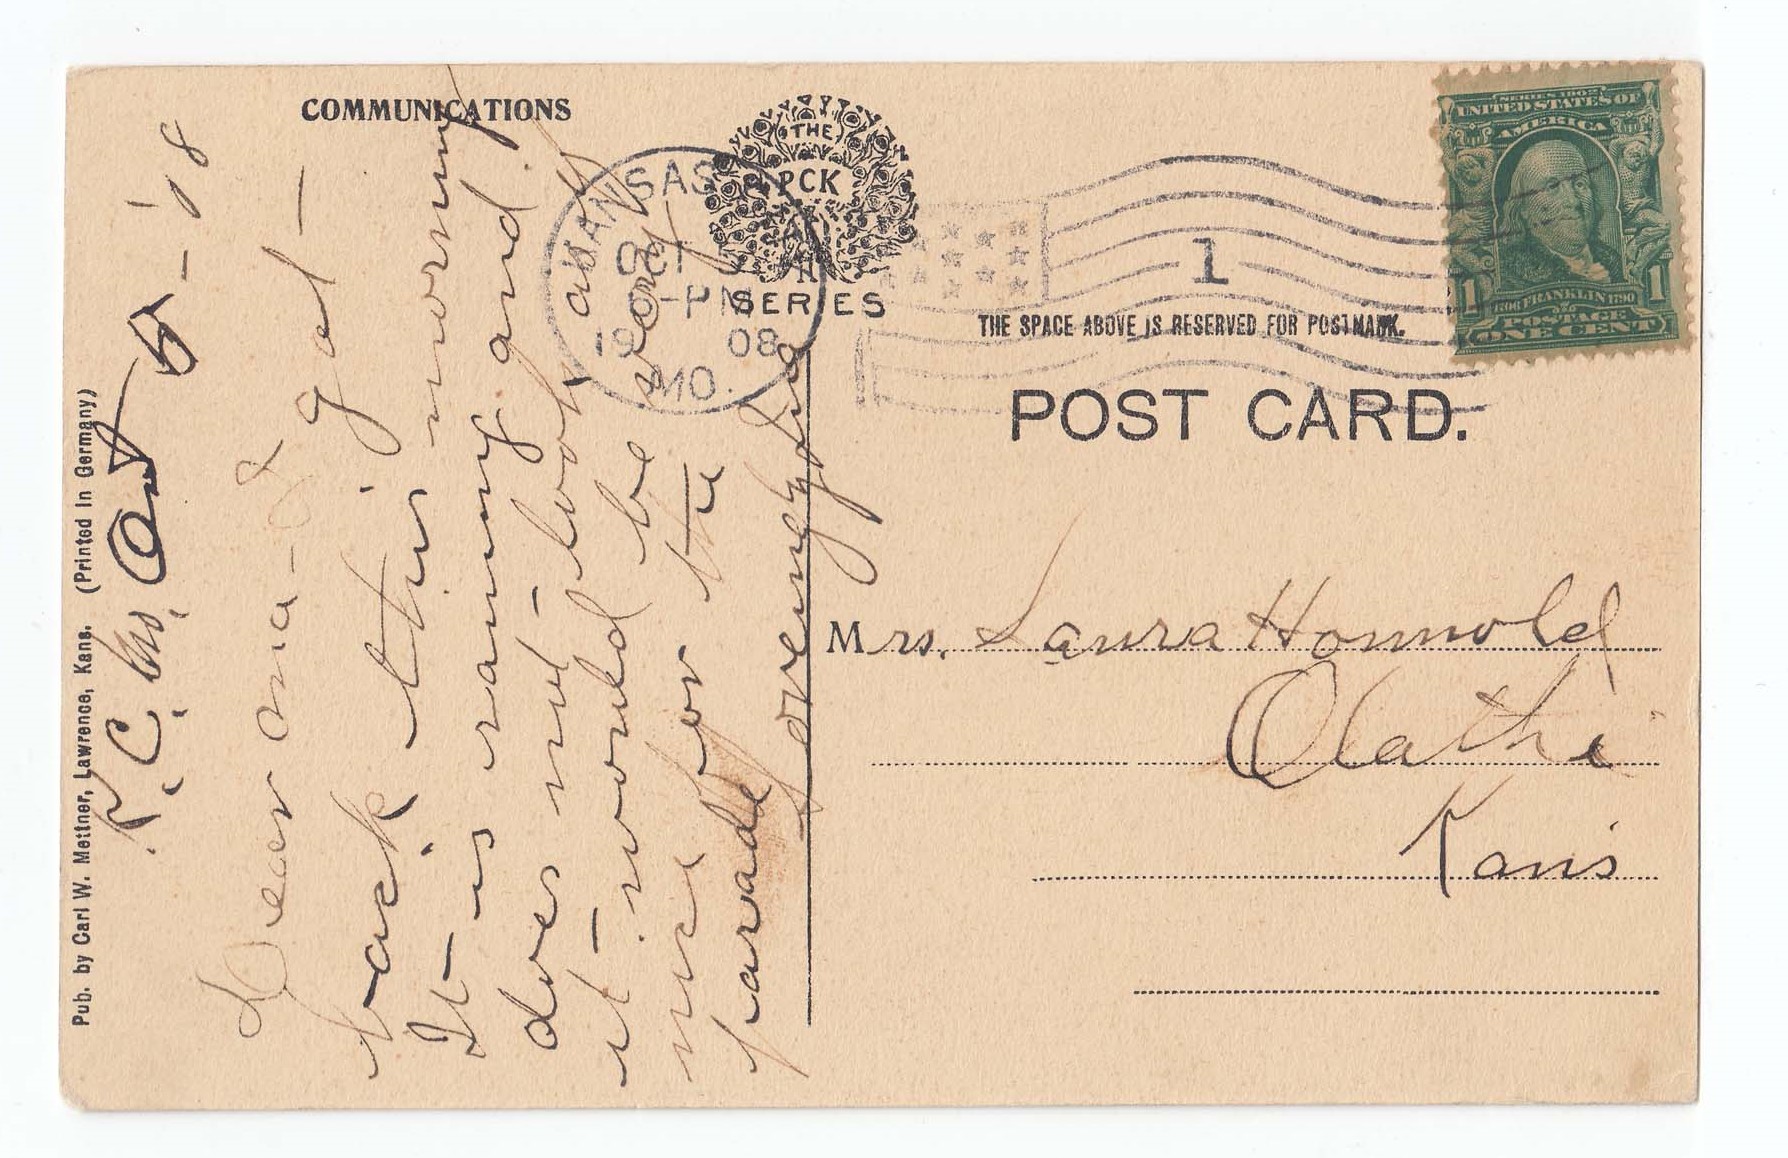 COMMUNICATIONS
THE
PCK
SERIES
KANSAS
OCT 5
6-PM
1908
MO.
1
THE SPACE ABOVE IS RESERVED FOR POSTMARK.
SERIES 1902
UNITED STATES OF
AMERICA
1 1
1706 FRANKLIN 1790
POSTAGE
ONE CENT
POST CARD.
Pub. by Carl W. Mettner, Lawrence, Kans. (Printed in Germany)
K.C. Mo. Oct 5 - '08
Dear ona - I got -
back this morning
It - is raining and
does not - look as if
it - would be very
nice for the
parade
evening
Mrs. Laura Honnold
Olathe
Kans